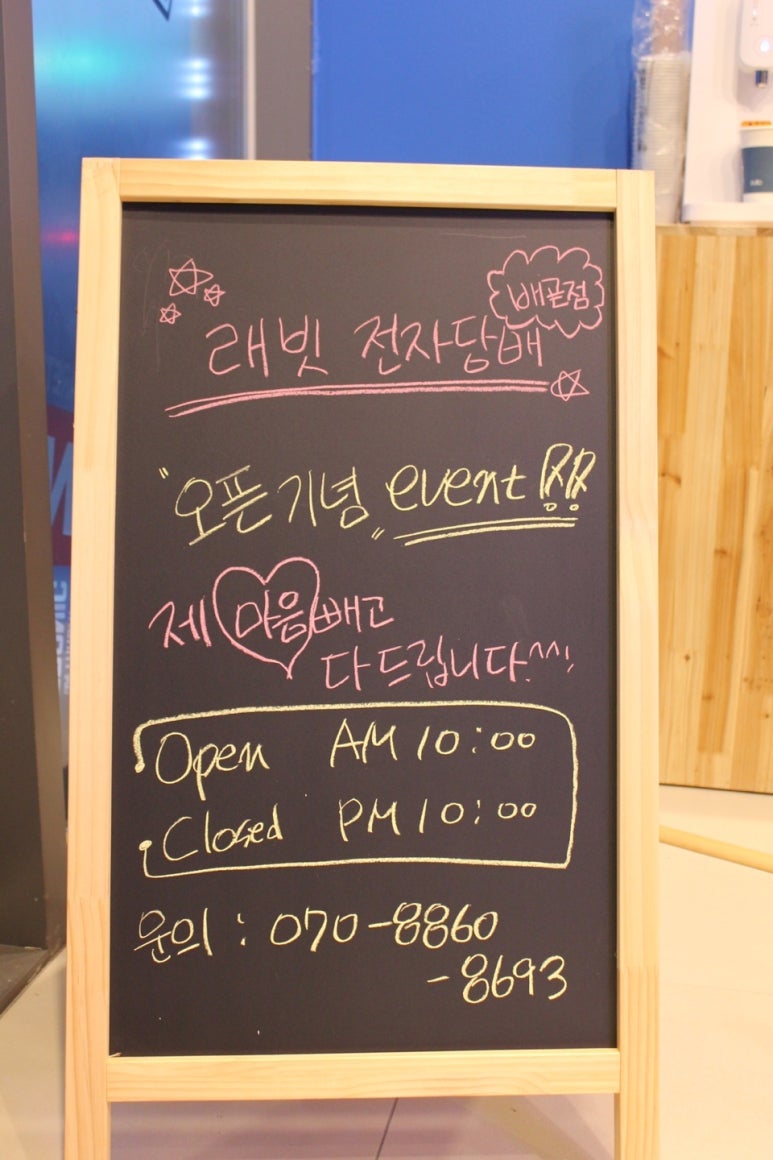 배곧점
래빗 전자담배
"오픈기념" event!!
제 마음빼고
다드립니다.^^!
Open AM 10:00
Closed PM 10:00
문의 : 070-8860
-8693